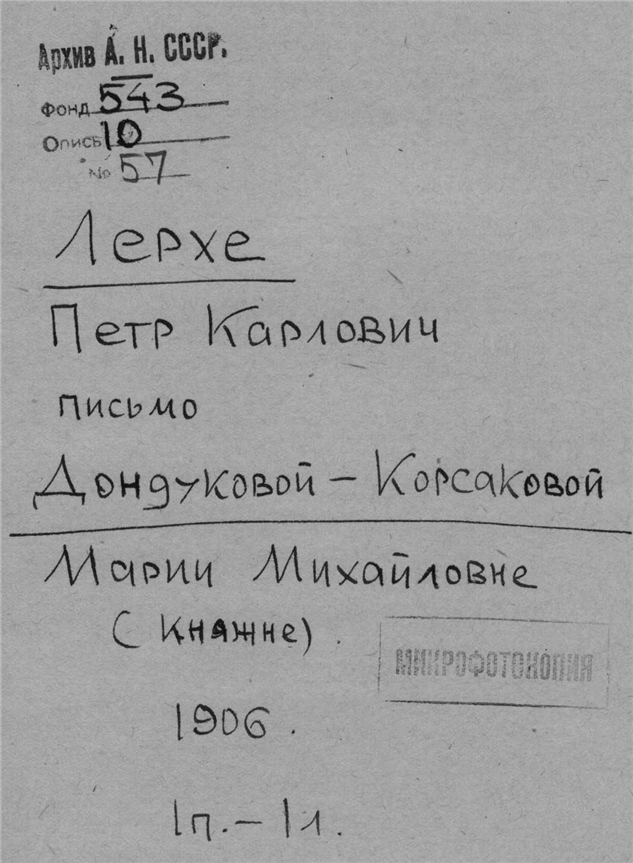 Архив А. Н. СССР.
Фонд 543
Опись 10
№ 57
Лерхе
Петр Карлович
письмо
Дондуковой – Корсаковой
Марии Михайловне
(княжне).
МИКРОФОТОКОПИЯ
1906.
1п. – 1л.